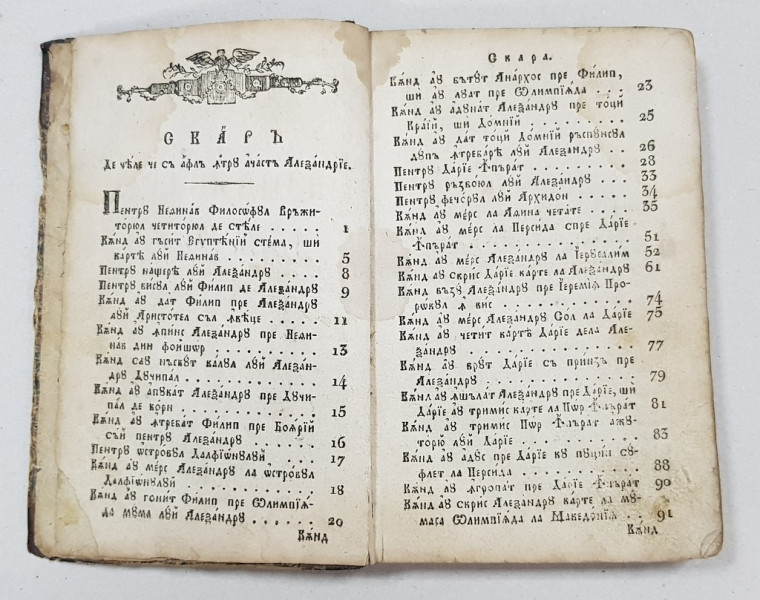 СКА́РЪ
Де че́ле че съ а́флъ ꙟтру ача́стъ Алеѯа́ндрїе.
Пентру Неѳина́в Филосо́фул Врѫжи-
торюл четито́рюл де сте́ле . . . . . 1
Кѫнд ау гъси́т Егупте́нїй сте́ма, ши
ка́рте луй Неѳина́в . . . . . . 5
Пентру на́щере луй Алеѯа́ндру . . . . 8
Пентру ви́сул луй Фили́п де Алеѯа́ндру 9
Кѫнд ау дат Фили́п пре Алеѯа́ндру
луй Аристо́тел съл ꙟве́це . . . . . 11
Кѫнд ау ꙟпи́нс Алеѯа́ндру пре Неѳи-
на́в дин фоишѡ́р . . . . . . 13
Кѫнд сау нъску́т ка́лул луй Алеѯа́н-
дру Дучипа́л . . . . . . 14
Кѫнд ау апука́т Алеѯа́ндру пре Дучи-
па́л де ко́рн . . . . . . 15
Кѫнд ау ꙟтреба́т Фили́п пре Боѧ́рїй
съй пентру Алеѯа́ндру . . . . . 16
Пентру ѡ́стровул Далфїѡ́нулуй . . . . 17
Кѫнд ау мерс Алеѯа́ндру ла ѡ́стровул
Далфїѡ́нулуй . . . . . . 18
Кѫнд ау гони́т Фили́п пре Ѡлимпїѧ́-
да му́ма луй Алеѯа́ндру . . . . . 20
Кѫнд
Скара.
Кѫнд ау бъту́т Ана́рхос пре Фили́п,
ши ау луа́т пре Ѡлимпїѧ́да . . . 23
Кѫнд ау адуна́т Алеѯа́ндру пре то́ци
Кра́їй, ши До́мнїй . . . . . 25
Кѫнд ау дат то́ци До́мнїй ръспу́нсул
ду́пъ ꙟтреба́ре луй Алеѯа́ндру . . 26
Пентру Да́рїе Ꙟпъра́т . . . . 28
Пентру ръзбо́юл луй Алеѯа́ндру . . . 33
Пентру фечо́рул луй Архидо́н . . . 34
Кѫнд ау мерс ла Аѳи́на чета́те . . . 35
Кѫнд ау мерс ла Перси́да спре Да́рїе
Ꙟпъра́т . . . . . . 51
Кѫнд ау мерс Алеѯа́ндру ла Іерусали́м 52
Кѫнд ау скрис Да́рїе ка́рте ла Алеѯа́ндру 61
Кѫнд възу́ Алеѯа́ндру пре Іереми́ѧ Про-
ро́кул ꙟ вис . . . . . . 74
Кѫнд ау мерс Алеѯа́ндру Сол ла Да́рїе 75
Кѫнд ау чети́т ка́рте Да́рїе дела Але-
ѯа́ндру . . . . . . 77
Кѫнд ау врут Да́рїе съ при́нзъ пре
Алеѯа́ндру . . . . . . 79
Кѫнд ау ꙟшъла́т Алеѯа́ндру пре Да́рїе, ши
Да́рїе ау трими́с ка́рте ла Пѡр Ꙟпъра́т 81
Кѫнд ау трими́с Пѡр Ꙟпъра́т ажу-
то́рю луй Да́рїе . . . . . 83
Кѫнд ау аду́с пре Да́рїе ку пуци́н су́-
флет ла Перси́да . . . . . 88
Кѫнд ау ꙟгропа́т пре Да́рїе Ꙟпъра́т 90
Кѫнд ау скрис Алеѯа́ндру ка́рте ла му́-
маса Ѡлимпїѧ́да ла Македо́нїѧ . . 91
Кѫнд